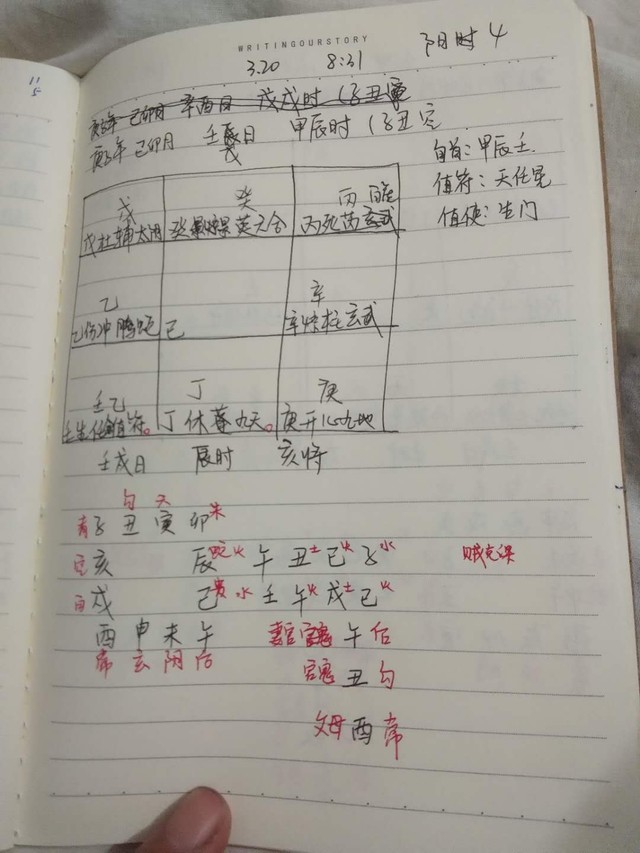 WRITINGOURSTORY
阳时4
3.20 8:31
己卯月 辛酉日 戊戌时 (子丑
庚子年 己卯月 壬戌日 甲辰时 (子丑空
旬首:甲辰壬
值符:天任星
值使:生门
戊 癸 丙
戊杜辅太阴 癸景英六合 丙死芮玄武
乙 辛
乙伤冲腾蛇 己 辛惊柱玄武
壬乙 丁 庚
壬生任值符。 丁休蓬九天。 庚开心九地
壬戌日 辰时 亥将
勾 六
青子 丑 寅 卯朱
空亥 辰蛇火 午 丑土 巳火 子水 贼克课
白戌 巳贵水 壬 午火 戌土 巳火
酉 申 未 午 午后
常 玄 阴 后 官鬼 丑勾
父母 酉 常
11
5